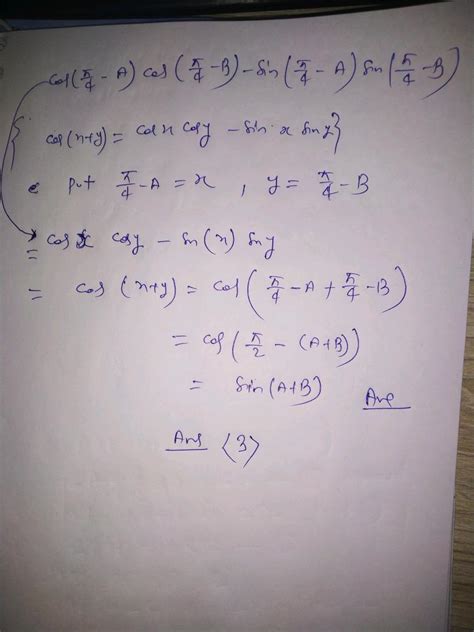 cos(π/4 - A) cos(π/4 - B) - sin(π/4 - A) sin(π/4 - B)
{cos(x+y) = cosx cosy - sin x siny}
put π/4 - A = x , y = π/4 - B
= cosx cosy - sin(x) siny
= cos (x+y) = cos(π/4 - A + π/4 - B)
= cos(π/2 - (A+B))
= sin(A+B) Ans
Ans (3)